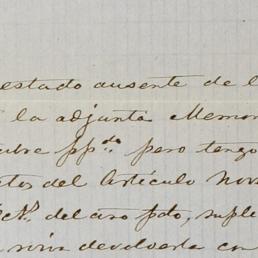 estado ausente de l
la adjunta Memor
bre pp.do pero tengo
tos del Artículo Nov
del año pdo, suple
devolverla con